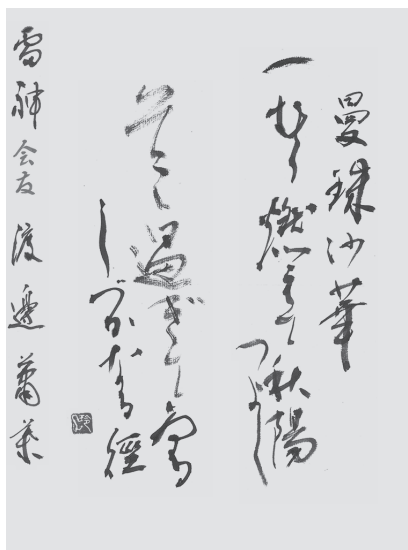 曼珠沙華
一むら燃えて秋陽
つよし
そこ過ぎてゐる
しづかなる徑
会友 渡邊